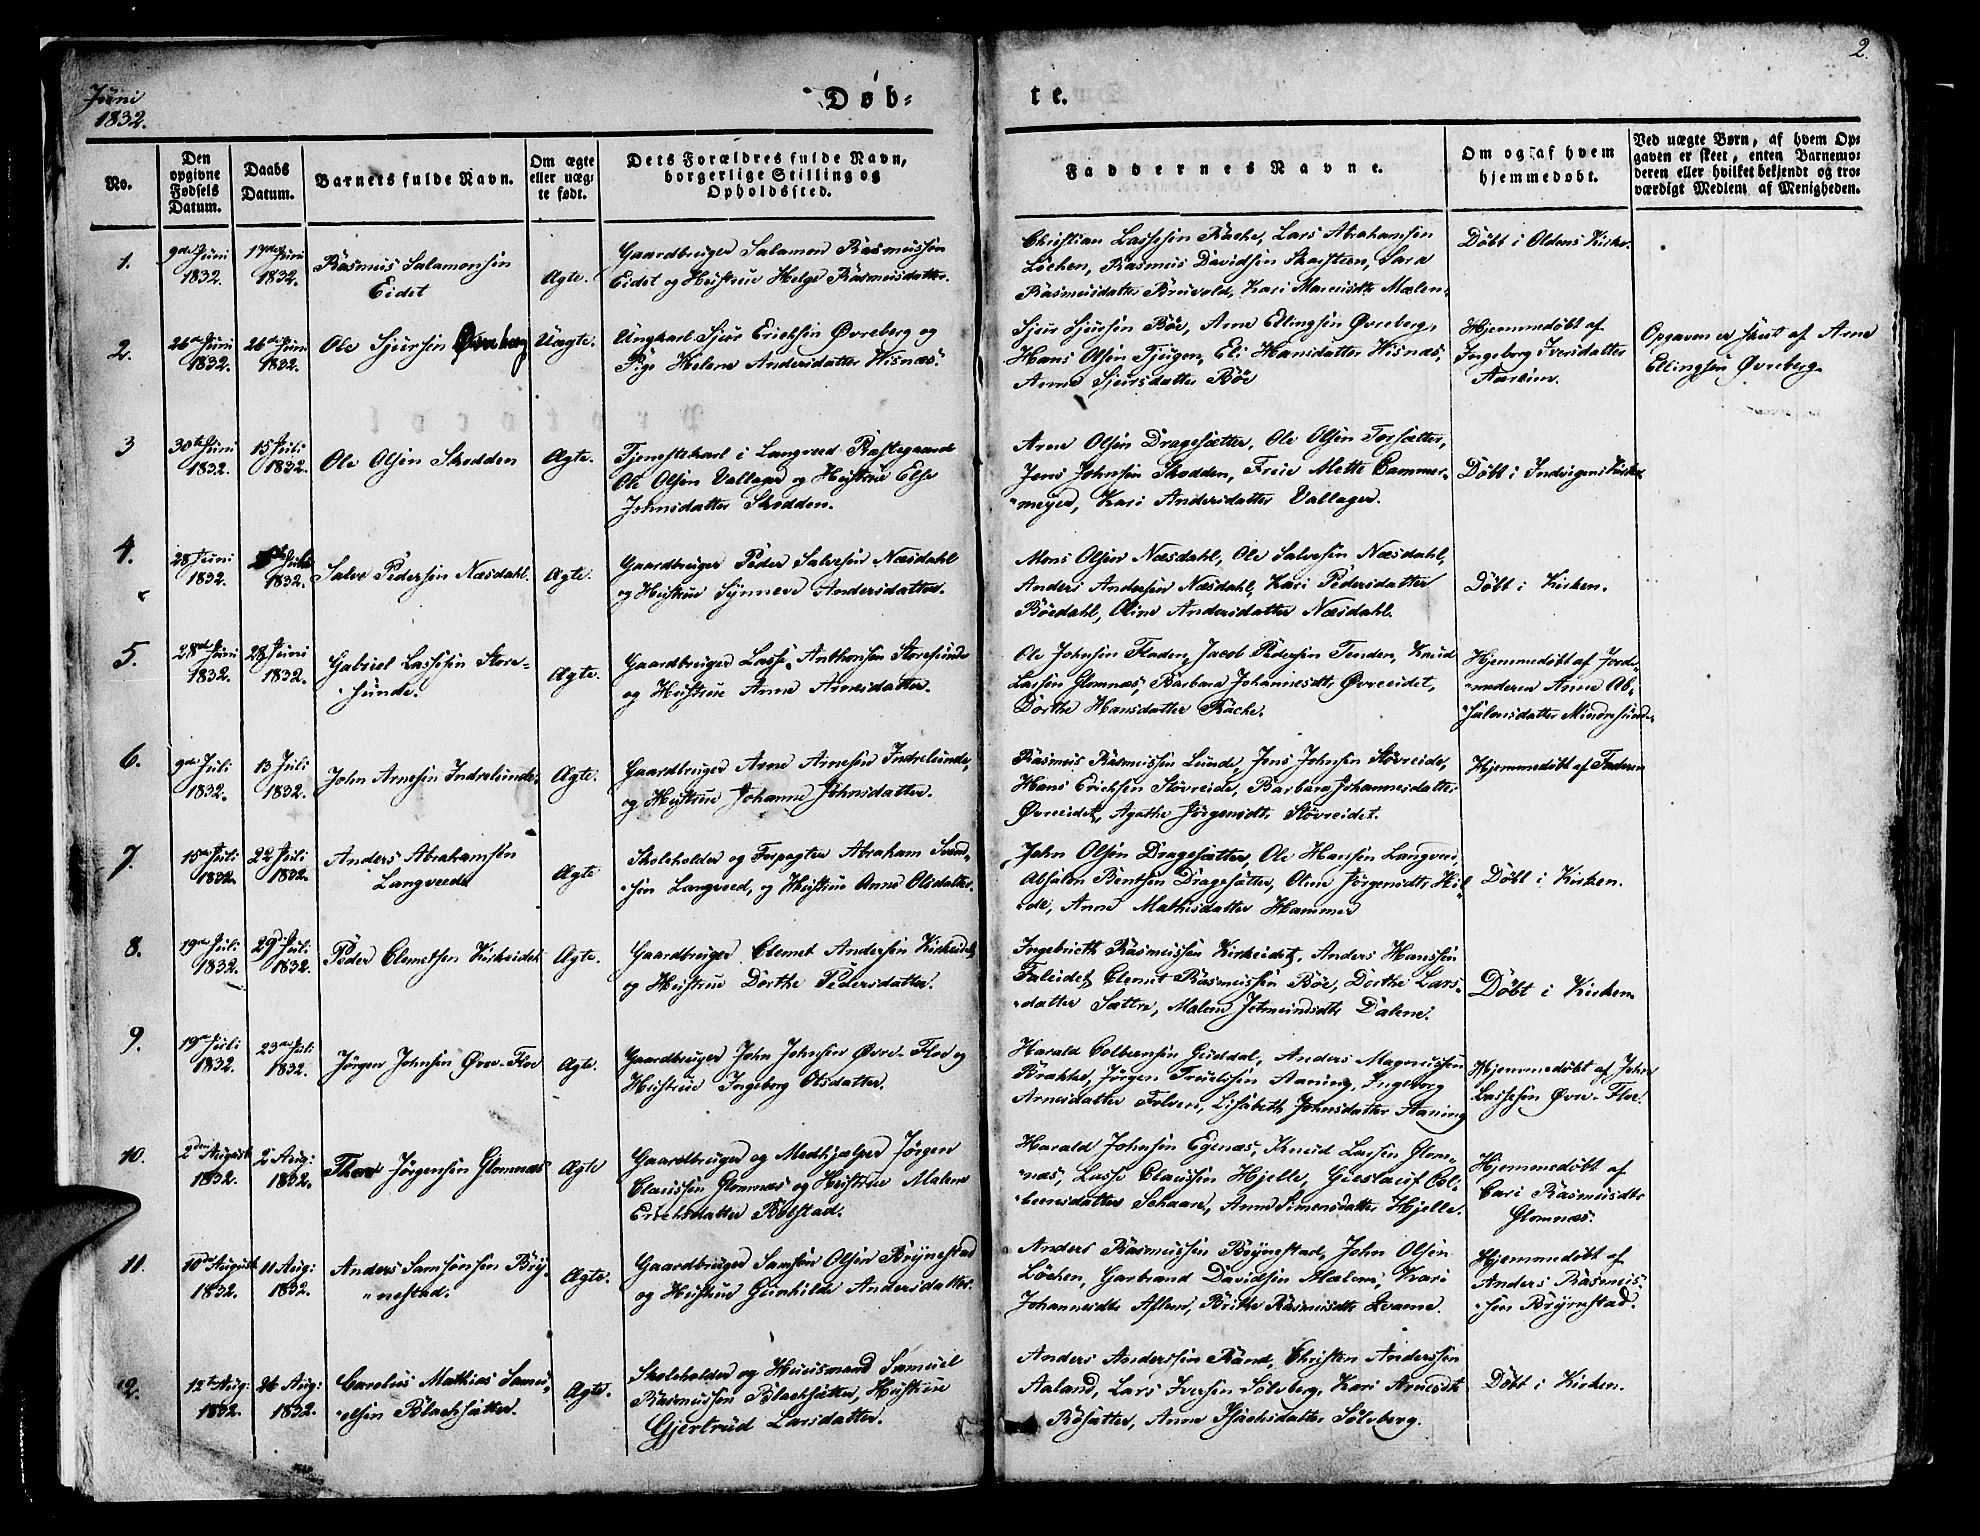 2.
Juni
1832.
Døb-
te.
No.
Den opgivne Fødsels Datum.
Daabs Datum.
Barnets fulde Navn.
Om ægte eller uægte født.
Dets Forældres fulde Navn, borgerlige Stilling og Opholdssted.
Faddernes Navne.
Om og af hvem hjemmedøbt.
Ved uægte Børn, af hvem Opgaven er skeet, enten Barnemoderen eller hvilket bekjendt og troværdigt Medlem af Menigheden.
1.
9de Juni
1832.
Juni
1832.
Rasmus Salamonsen
Eidet
Ægte.
Gaardbruger Salamon Rasmussøn
Eidet og Hustrue Helge Rasmusdatter.
Christian Lassesen Rache, Lars Abrahamsen
Löchen, Rasmus Davidsen Skarsteen, Sara
Rasmusdatter Bruvold, Kari Mæelen.
Döbt i Oldens Kirke.
2.
26de Juni
1832.
26de Juni
1832.
Ole Sjursen Øvreberg
Uægte.
Ungkarl Sjur Ericksen Øvreberg og
Pige Helene Andersdatter Hisnæs.
Sjur Sjursen Böe, Arne Ellingsen Øvreberg,
Hans Olsen Tjugen, Eli Hansdatter Hisnæs,
Anne Sjursdatter Böe
Hjemmedöbt af
Ingeborg Iversdatter
Aarsim.
Opgaven er skeet af Arne
Ellingsen Øvreberg.
3
30te Juni
1832.
15 Juli
1832.
Ole Olsen Skodden
Ægte.
Tjenestekarl i Langveed Præstegaard
Ole Olsen Vallager og Hustrue Else
Johnsdatter Skodden.
Arne Olsen Dragesætter, Ole Olsen Torsætter,
Jens Johnsen Skodden, Mette Cammer-
meyer, Kari Andersdatter Vallager.
Döbt i Indvigens Kirke
4.
28 Juni
1832.
Juli
1832.
Salve Pedersen Næsdahl.
Ægte.
Gaardbruger Peder Salvesen Næsdahl
og Hustrue Synneve Andersdatter.
Mons Olsen Næsdahl, Ole Salvesen Næsdahl,
Anders Andersen Næsdahl, Kari Pedersdatter
Böedahl, Oline Andersdatter Næsdahl.
Döbt i Kirken.
5.
28de Juni
1832.
28 Juni
1832.
Gabriel Lassesen Store-
sunde.
Ægte.
Gaardbruger Lasse Anthonsen Storesunde
og Hustrue Anne Arnesdatter.
Ole Johnsen Fladen, Jacob Pedersen Tenden, Knud
Lassen Glomnæs, Barbara Johannesdtr Øvreeidet,
Dorthe Hansdatter Rache.
Hjemmedöbt af Jorde-
moderen Anne Ab-
salonsdatter Mindresunde
6.
9de Juli
1832.
13 Juli
1832.
John Arnesen Indrelunde.
Ægte.
Gaardbruger Arne Arnesen Indrelunde,
og Hustrue Johanne Johnsdatter.
Rasmus Rasmussen Lunde, Jens Johnsen Störeide,
Hans Ericksen Störeide, Barbara Johannesdatter
Øvreeidet, Agathe Jörgensdtr Störeidet.
Hjemmedöbt af Faderen
7.
15de Juli
1832.
22 Juli
1832.
Anders Abrahamsen
Langveed
Ægte
Skoleholder og Forpagter Abraham Svend-
sen Langveed, og Hustrue Anne Olsdatter.
John Olsen Dragesætter, Ole Hansen Langveed,
Absalon Bentsen Dragesætter, Oline Jörgensdtr Hil-
de, Anne Mathisdatter Hammer
Döbt i Kirken.
8.
19de Juli
1832.
29 Juli
1832.
Peder Clemetsen Kirkeidet
Ægte.
Gaardbruger Clemet Andersen Kirkeidet
og Hustrue Dorthe Pedersdatter.
Ingebricth Rasmussen Kirkeidet, Anders Hanssen
Faleidet, Clemet Rasmussen Böe, Dorthe Lars-
datter Sætre, Malene Jetmundsdtr Dalene.
Döbt i Kirken.
9.
19de Juli
1832.
23de Juli
1832.
Jörgen Johnsen Øvre-Floe
Ægte.
Gaardbruger John Johnsen Øvre-Floe og
Hustrue Ingeborg Olsdatter.
Harald Colbensen Guddal, Anders Magnussen
Brække, Jörgen Truelssen Aaning, Ingeborg
Arnesdatter Folven, Lisabeth Johnsdatter Aaning
Hjemmedöbt af John
Lassesen Øvre-Floe.
10.
2den August
1832.
2 Aug:
1832.
Jörgensen Glomnæs
Ægte
Gaardbruger og Medhjælper Jörgen
Claussen Glomnæs og Hustrue Malene
Ericksdatter Bolstad.
Harald Johnsen Egenæs, Knud Lassen Glom-
næs, Lasse Claussen Hjelle, Col-
bensdatter Schaare, Anne Simensdatter Hjelle.
Hjemmedöbt af
Cari Rasmusdtr
Glomnæs.
11.
10de August
1832.
11 Aug:
1832.
Anders Samsonsen Bry-
nestad.
Ægte.
Gaardbruger Samson Olsen Brynestad
og Hustrue Gunhilde Andersdatter.
Anders Rasmussen Brynestad, John Olsen
Löchen, Garbrand Davidsen Mælen, Kari
Johannesdtr Aslien, Brithe Rasmusdtr Qvame.
Hjemmedöbt af
Anders Rasmus-
sen Brynestad.
12.
12te Aug:
1832.
26 Aug:
1832.
Carelius Mathias Samu-
elsen Blachsætter.
Ægte.
Skoleholder og Huusmand Samuel
Rasmussen Blachsætter, Hustrue
Gjertrud Larsdatter.
Anders Anderssen Rand, Christen Anderssen
Aaland, Lars Iversen Sölvberg, Kari Arnesdtr
Rosætter, Anne Isachsdatter Sölvberg.
Döbt i Kirken.